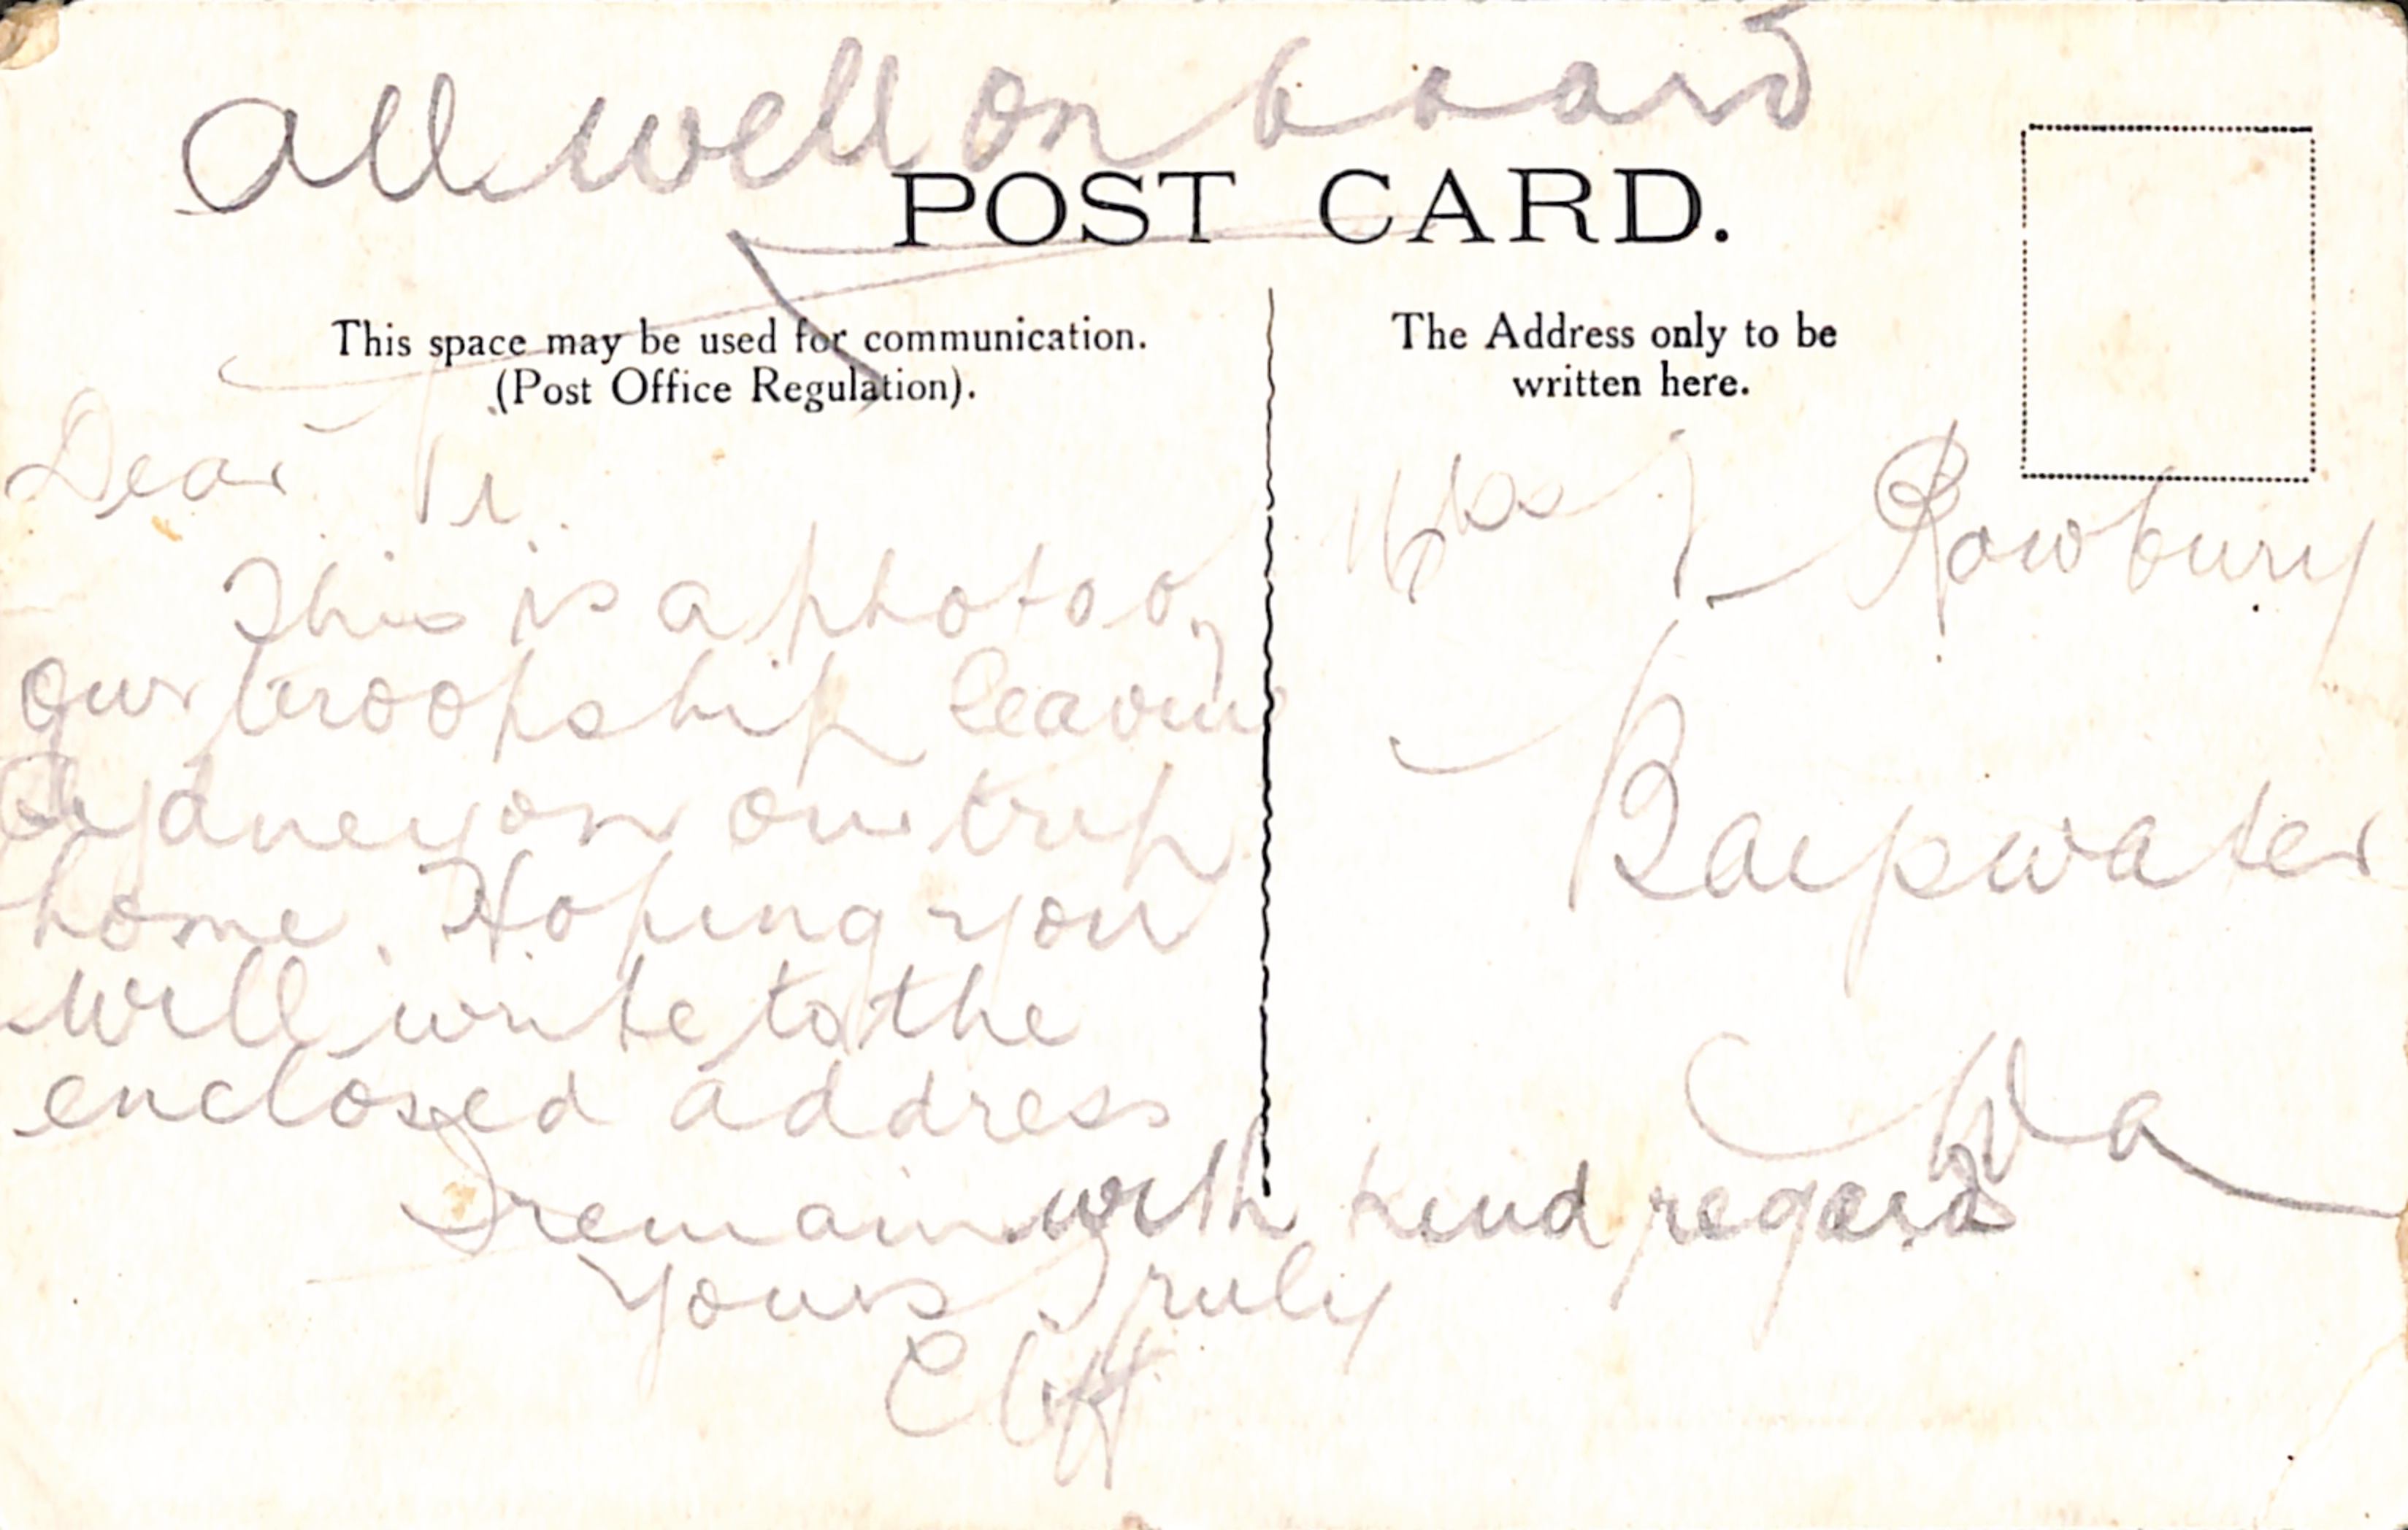 All well on board
POST CARD.
This space may be used for communication.
(Post Office Regulation).
The Address only to be
written here.
Dear Vi.
This is a photo of
our troopship leaving
Sydney on our trip
home. Hoping you
will write to the
enclosed address
I remain with kind regard
Yours Truly
Cliff
Rowbury
Bayswater
Wa